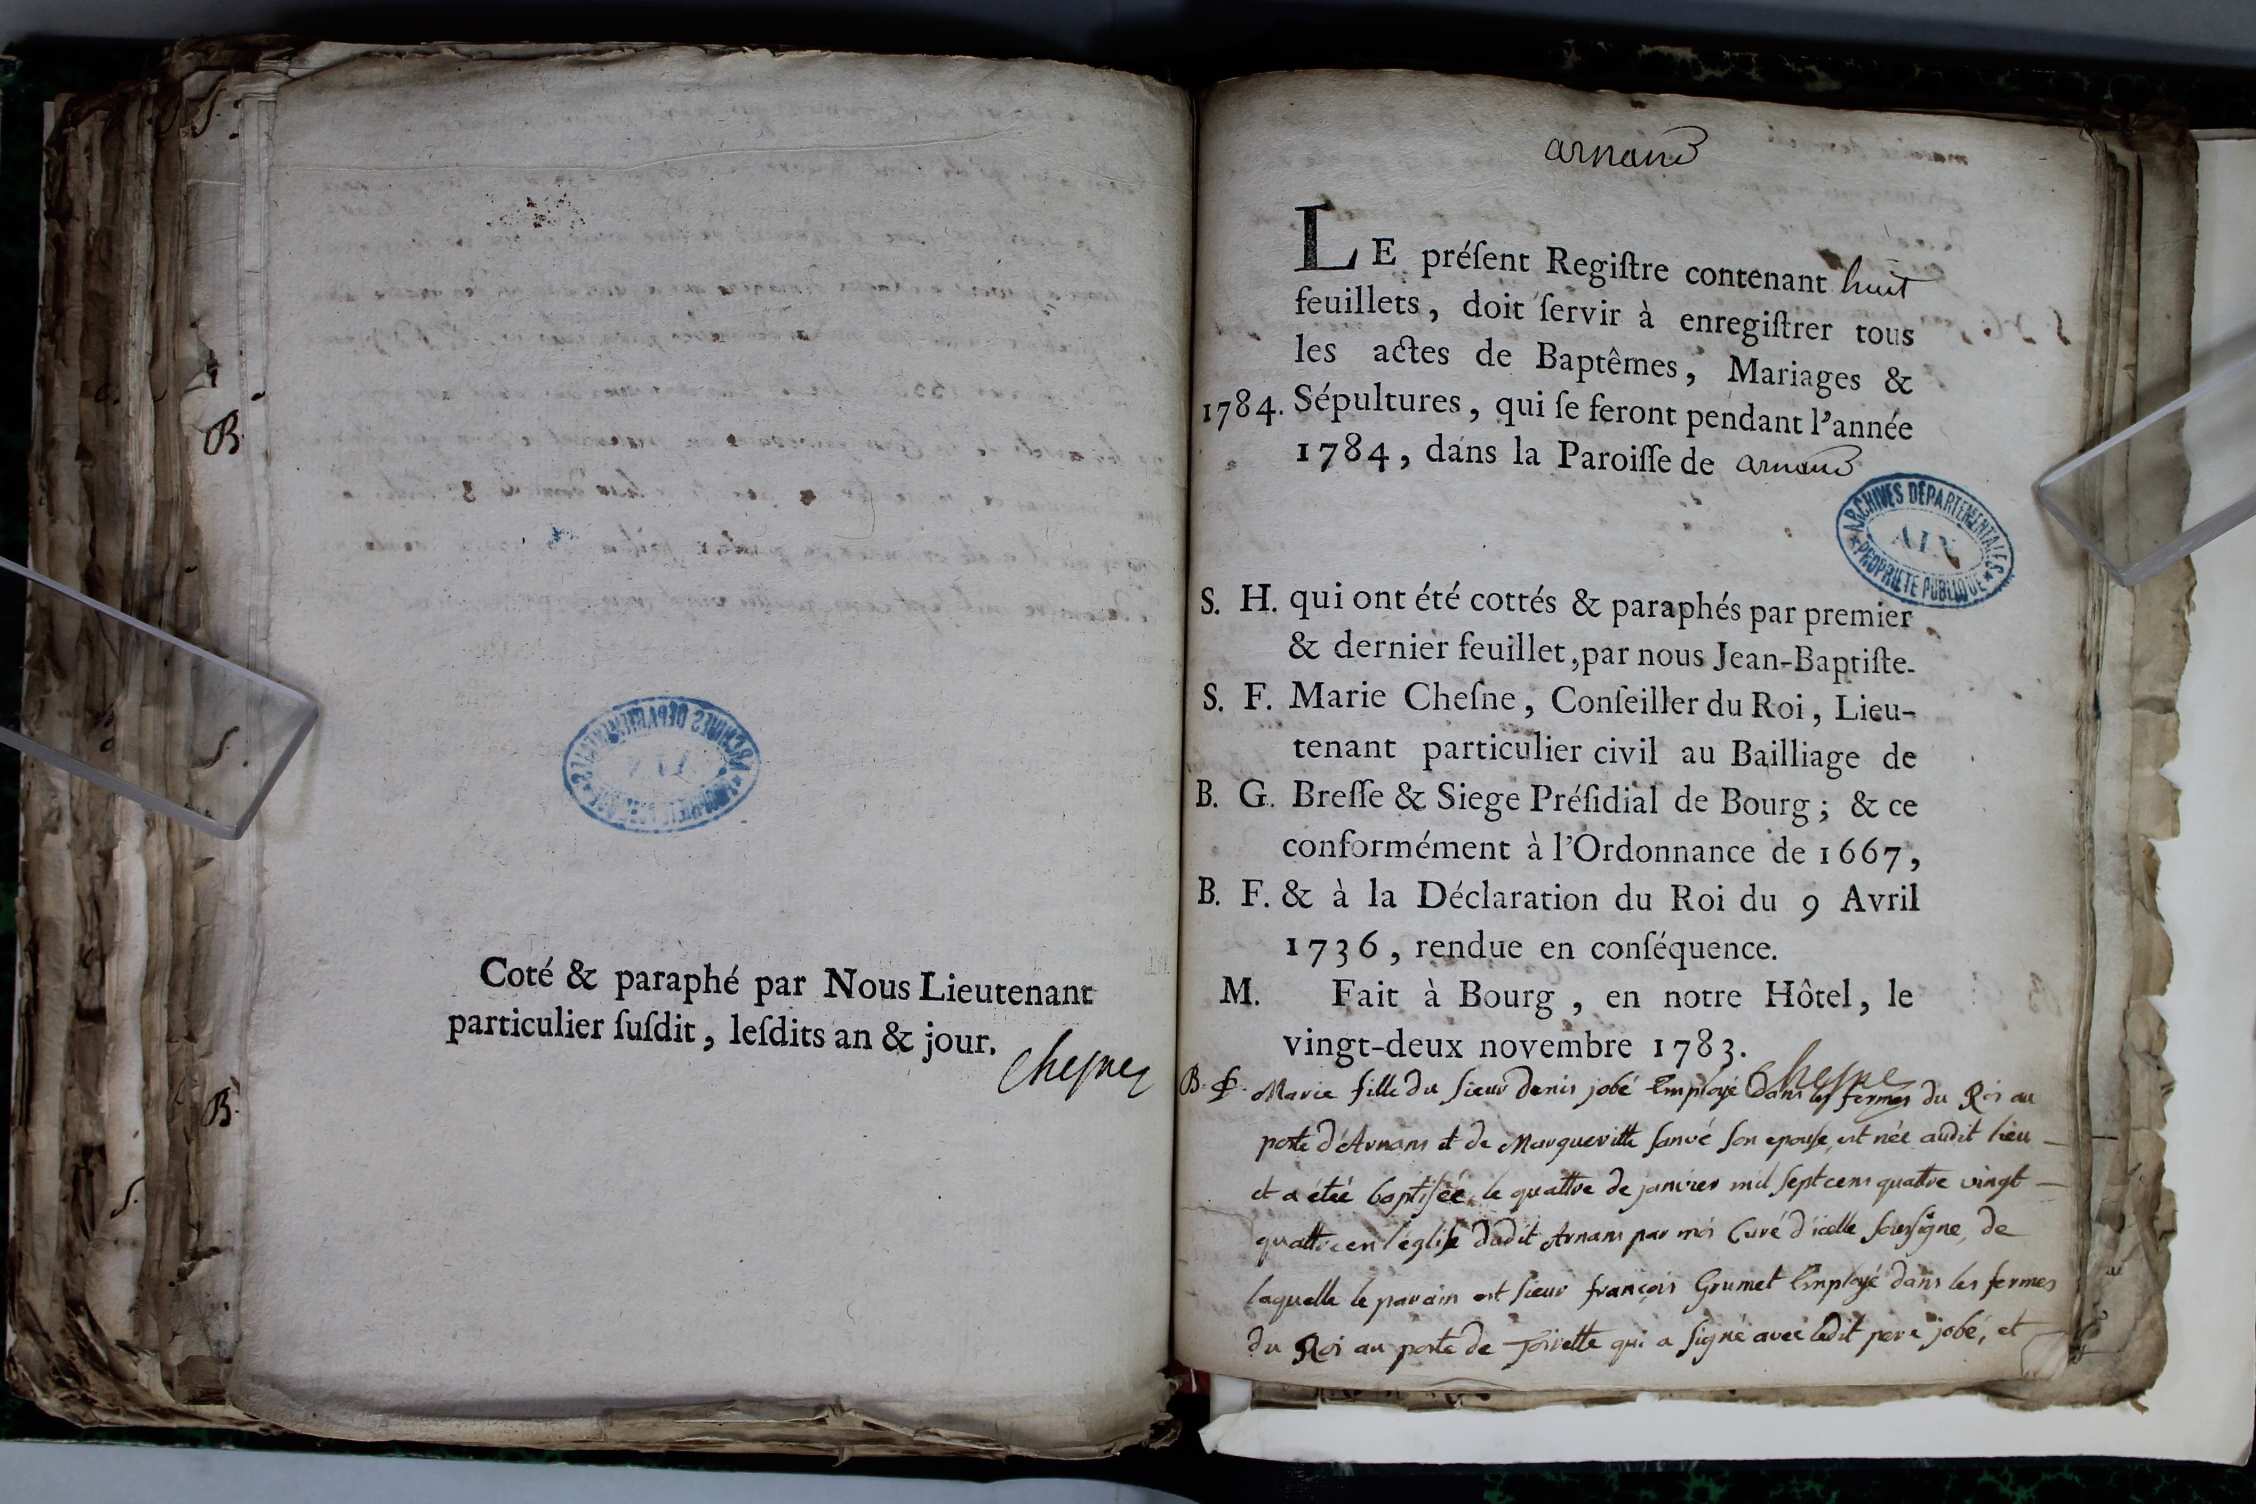 B.
B.
Coté & paraphé par Nous Lieutenant
particulier ſuſdit, leſdits an & jour.
Cheſne
arnand
LE préſent Regiſtre contenant huit
feuillets, doit ſervir à enregiſtrer tous
les actes de Baptêmes, Mariages &
1784. Sépultures, qui ſe feront pendant l'année
1784, dans la Paroiſſe de arnand
ARCHIVES DÉPARTEMENTALES
AIN
PROPRIÉTÉ PUBLIQUE
S. H. qui ont été cottés & paraphés par premier
& dernier feuillet, par nous Jean-Baptiſte-
S. F. Marie Cheſne, Conſeiller du Roi, Lieu-
tenant particulier civil au Bailliage de
B. G. Breſſe & Siege Préſidial de Bourg; & ce
conformément à l'Ordonnance de 1667,
B. F. & à la Déclaration du Roi du 9 Avril
1736, rendue en conſéquence.
M. Fait à Bourg, en notre Hôtel, le
vingt-deux novembre 1783.
Cheſne
B. Marie fille du ſieur denis jobé Employé dans les fermes du Roi au
poste d'Arnans et de Margueritte ſon epouſe, est née audit lieu
et a étée baptiſée le quattre de janvier mil ſept cens quatre vingt
quattre en l'égliſe dudit Arnans par moi Curé d'icelle ſouſſigné, de
laquelle le parain est ſieur françois Grumet Employé dans les fermes
du Roi au poste de Toirette qui a ſigné avec ledit pere jobé, et